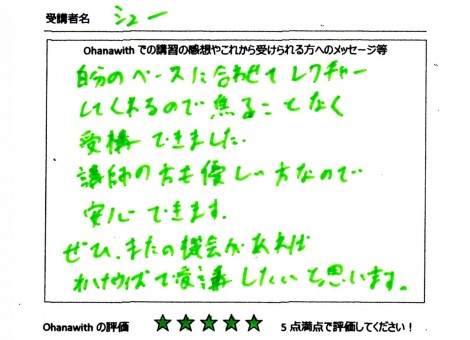 受講者名 シュー
Ohanawith での講習の感想やこれから受けられる方へのメッセージ等
自分のペースに合わせてレクチャー
してくれるので焦ることなく
受構できました。
講師の方も優しい方なので
安心できます。
ぜひ、またの機会があれば
オハナウィズで受講したいと思います。
Ohanawith の評価 ★★★★★ 5 点満点で評価してください!